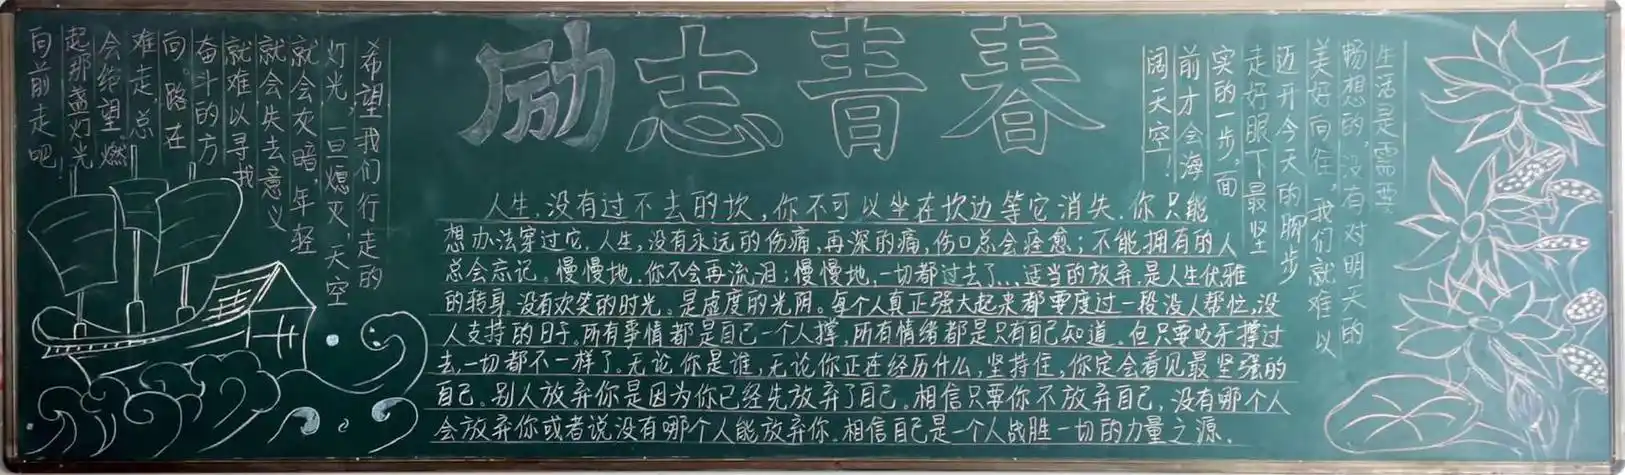 励志青春
生活是需要
畅想的,没有对明天的
美好向往,我们就难以
迈开今天的脚步
走好眼下最坚
实的一步,面
前才会海
阔天空!
人生,没有过不去的坎,你不可以坐在坎边等它消失,你只能
想办法穿过它.人生,没有永远的伤痛,再深的痛,伤口总会痊愈;不能拥有的人
总会忘记。慢慢地,你不会再流泪;慢慢地,一切都过去了...适当的放弃,是人生优雅
的转身。没有欢笑的时光。是虚度的光阴。每个人真正强大起来都要度过一段没人帮忙,没
人支持的日子。所有事情都是自己一个人撑,所有情绪都是只有自己知道。但只要咬牙撑过
去,一切都不一样了。无论你是谁,无论你正在经历什么,坚持住,你定会看见最坚强的
自己。别人放弃你是因为你已经先放弃了自己。相信只要你不放弃自己,没有哪个人
会放弃你或者说没有哪个人能放弃你.相信自己是一个人战胜一切的力量之源.
希望我们行走的
灯光,一旦熄灭,天空
就会灰暗,年轻
就会失去意义
就难以寻找
奋斗的方
向。路在
难走,总
会绝望。燃
起那盏灯光
向前走吧!